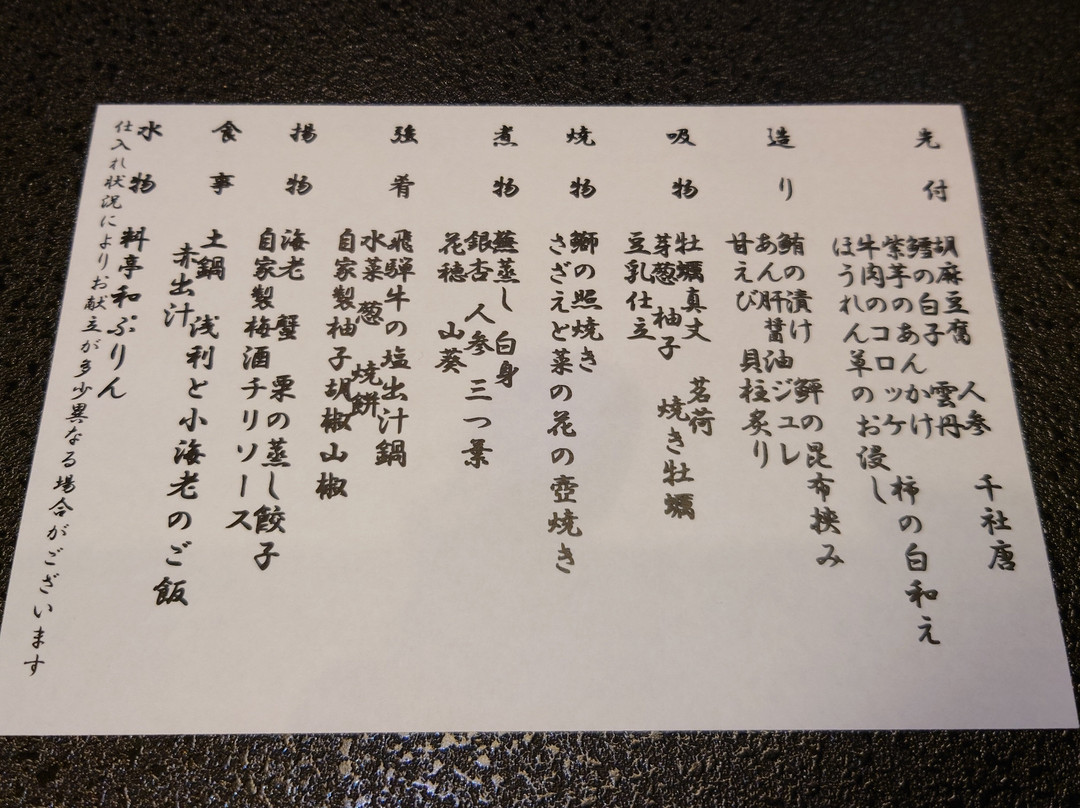 先付
胡麻豆腐 人参 千社唐
鱈の白子 雲丹
紫芋のあんかけ 柿の白和え
牛肉のコロッケ
ほうれん草のお浸し
造り
鮪の漬け 鮃の昆布挟み
あん肝醤油ジュレ
甘えび 貝柱炙り
吸物
牡蠣真丈 茗荷
芽葱 柚子 焼き牡蠣
豆乳仕立
焼物
鰤の照焼き
さざえと菜の花の壺焼き
煮物
蕪蒸し 白身
銀杏 人参 三つ葉
花穂 山葵
強肴
飛騨牛の塩出汁鍋
水菜 葱 焼餅
自家製柚子胡椒山椒
揚物
海老 蟹 栗の蒸し餃子
自家製梅酒チリソース
食事
土鍋 浅利と小海老のご飯
赤出汁
水物
料亭和ぷりん
仕入れ状況によりお献立が多少異なる場合がございます